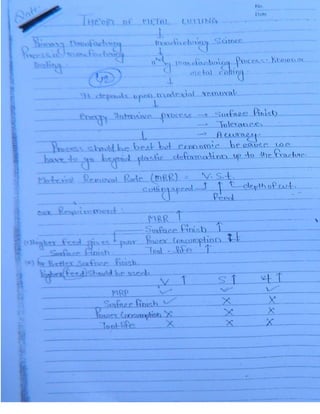 No.
Date
THEORY OF METAL CUTTING
Primary Manufacturing
Manufacturing Science
Process of manufacturing
2nd ry manufacturing process. Known as
Casting
metal cutting.
It depends upon material removal
Energy Intensive process → Surface finish
→ Tolerance.
→ Accuracy.
Process should be best but economic because we
have to go beyond plastic deformation up to the fracture
Material Removal Rate (MRR) = V.S.t.
cutting speed depth of cut.
Feed
our Requirement:
MRR ↑
Surface finish ↑
(i) Higher feed gives poor Power Consumption ↓
Surface finish Tool-life ↑
(ii) for Better Surface finish
higher feed should be used.
V ↑ S ↑ t ↑
MRR ✓ ✓ ✓
Surface finish ✓ X X
Power Consumption X X X
Tool-life X X X